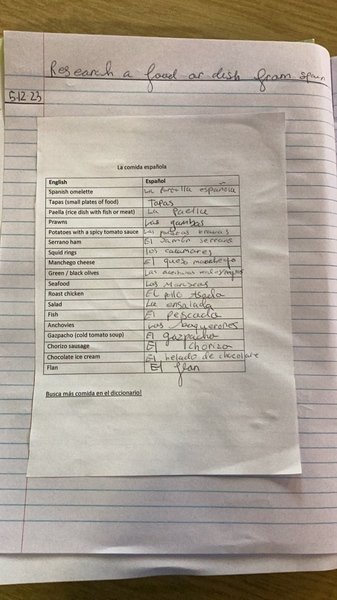 Research a food or dish from spain
5.12.23
La comida española
English Español
Spanish omelette La tortilla española
Tapas (small plates of food) Tapas
Paella (rice dish with fish or meat) La Paella
Prawns Las gambas
Potatoes with a spicy tomato sauce Las bravas
Serrano ham El Jamón serrano
Squid rings los calamares
Manchego cheese El queso
Green / black olives Las
Seafood Los Mariscos
Roast chicken El pollo
Salad La ensalada
Fish El Pescado
Anchovies Los boquerones
Gazpacho (cold tomato soup) El gazpacho
Chorizo sausage El chorizo
Chocolate ice cream El helado de chocolate
Flan El flan
Busca más comida en el diccionario!